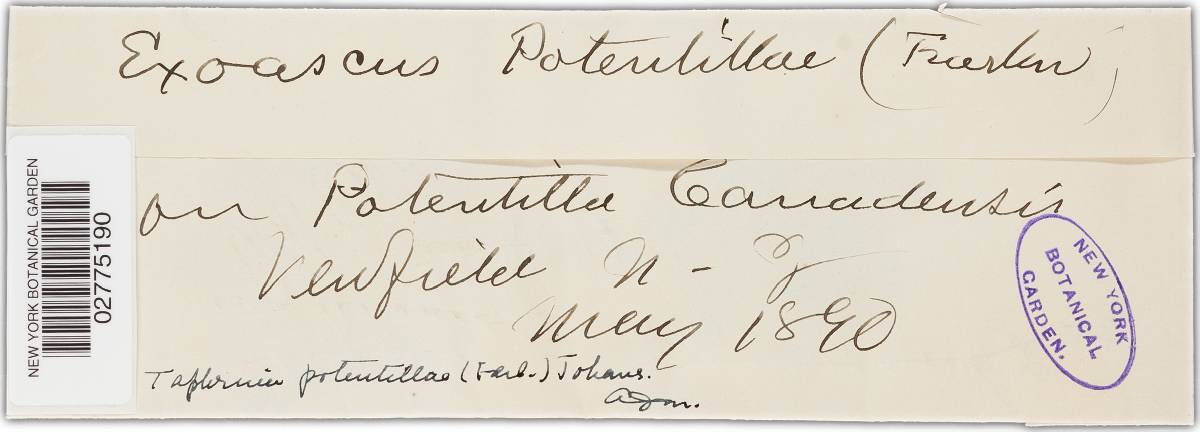 Exoascus Potentillae (Farlow)
on Potentilla Canadensis
Newfield N-J
May 1890
Taphrina potentillae (Farl.) Johans.
NEW YORK BOTANICAL GARDEN
02775190
NEW YORK
BOTANICAL
GARDEN.